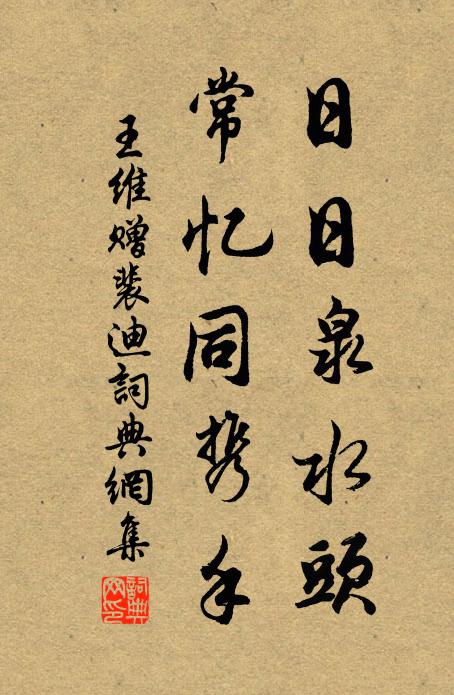 日日泉水頭
常忆同携手
王維赠裴迪詞典網集
詞典网印